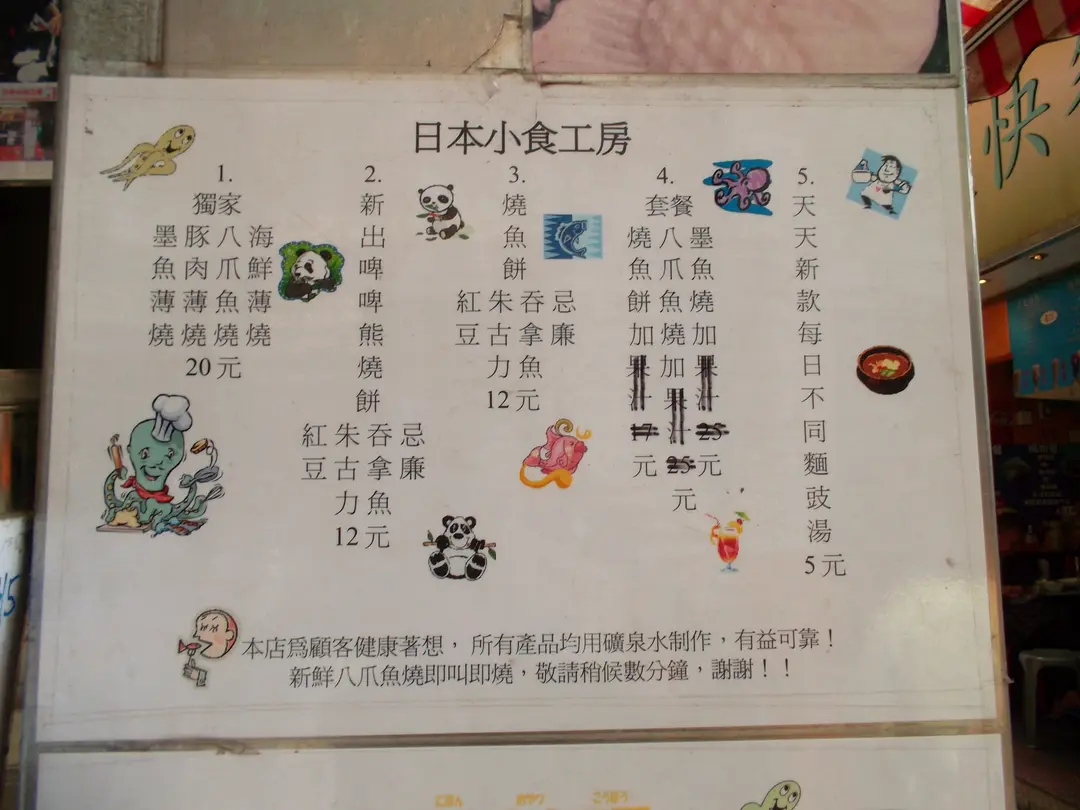 日本小食工房
1.
獨家
墨魚薄燒
豚肉薄燒
八爪魚燒
海鮮薄燒
20元
2.
新出啤啤熊燒餅
紅豆
朱古力
吞拿魚
忌廉
12元
3.
燒魚餅
紅豆
朱古力
吞拿魚
忌廉
12元
4.
套餐
燒魚餅加果汁
17元
八爪魚燒加果汁
25元
墨魚燒加果汁
25元
5.
天天新款每日不同麵豉湯
5元
本店爲顧客健康著想，所有產品均用礦泉水制作，有益可靠！
新鮮八爪魚燒即叫即燒，敬請稍候數分鐘，謝謝！！
快
にほん
こうぼう